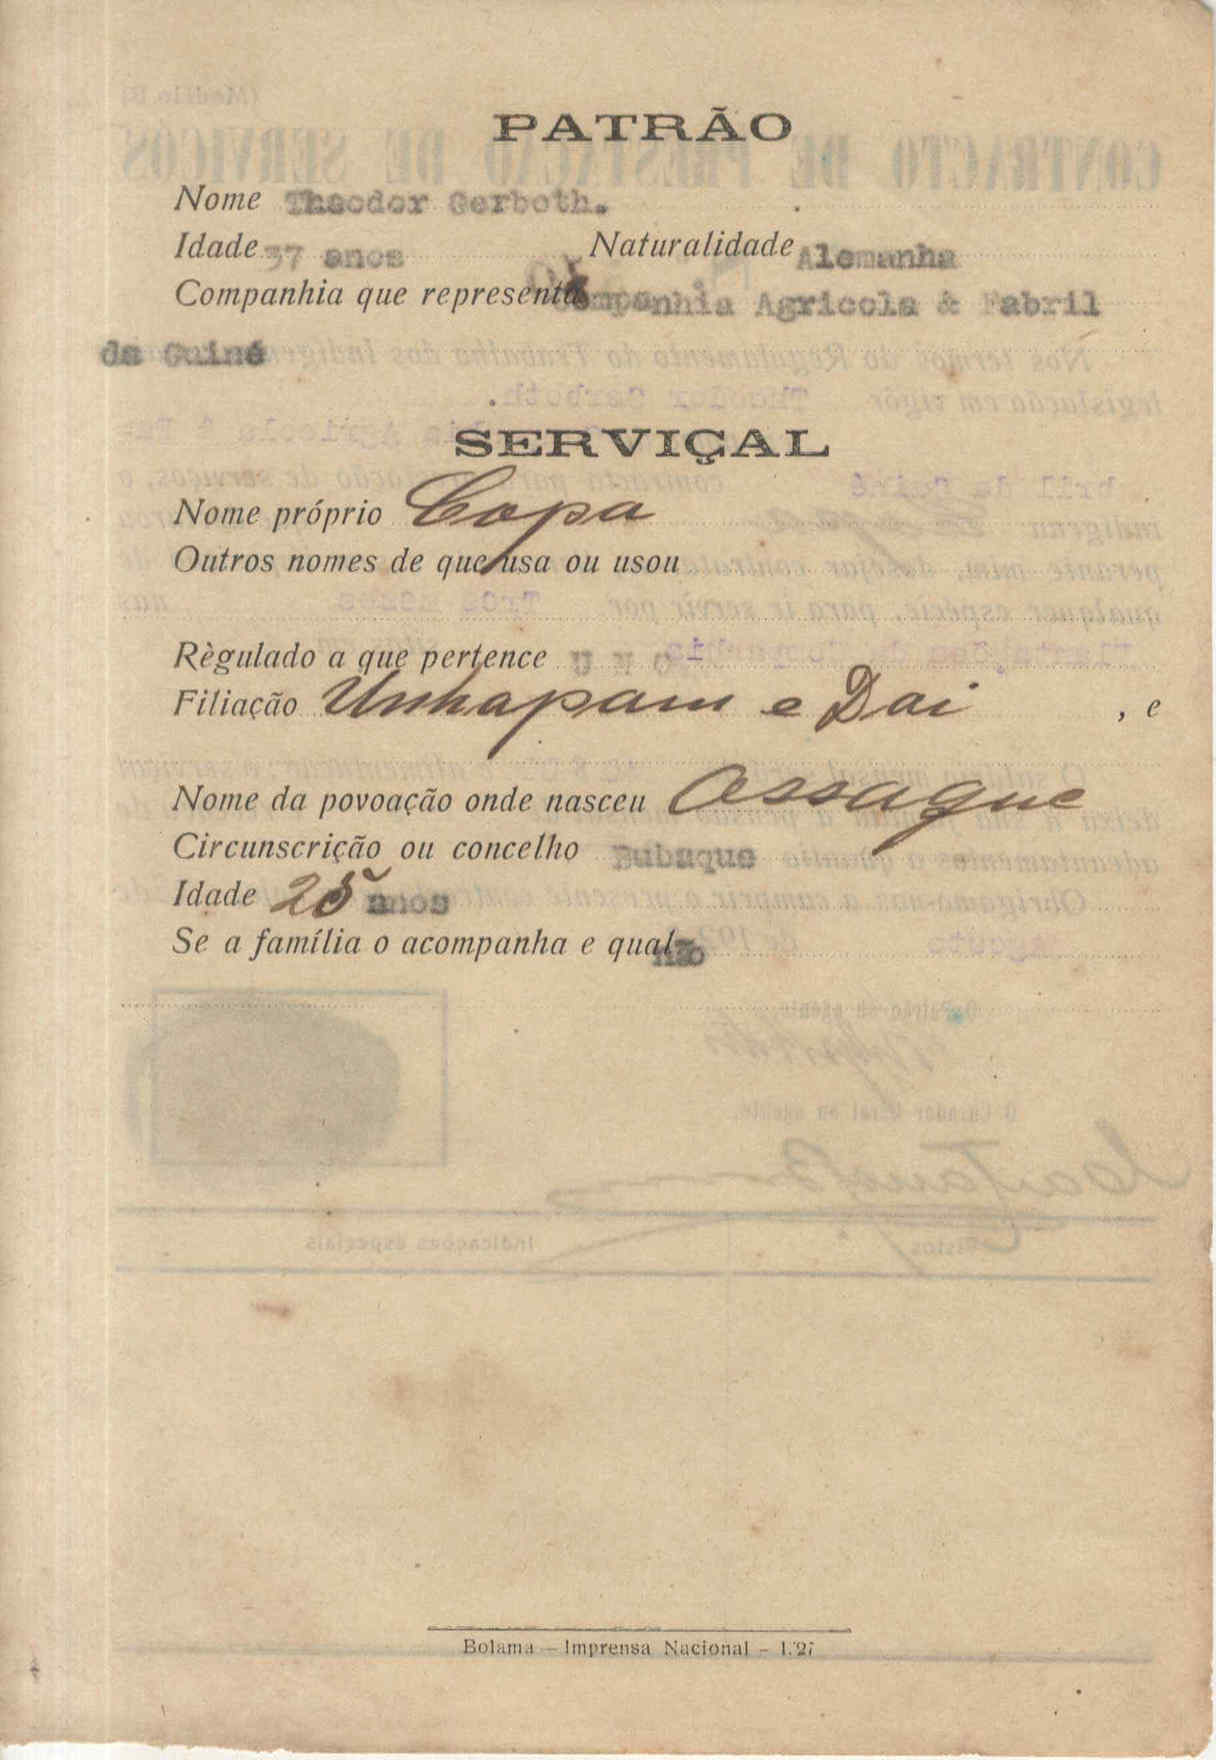 PATRÃO
Nome Theodor Gerboth.
Idade 37 anos Naturalidade Alemanha
Companhia que representa Companhia Agricola & Fabril
da Guiné
SERVIÇAL
Nome próprio Copa
Outros nomes de que usa ou usou
Règulado a que pertence
Filiação Unhapam e Dai , e
Nome da povoação onde nasceu Assaque
Circunscrição ou concelho Bubaque
Idade 25 anos
Se a família o acompanha e qual Não
Bolama — Imprensa Nacional —